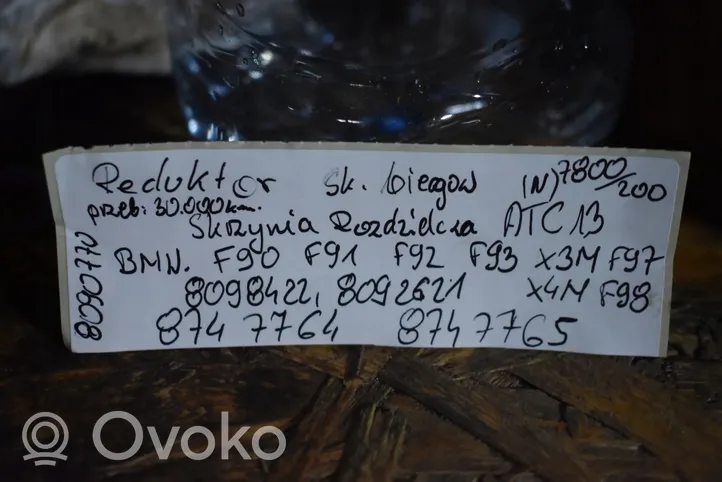 Reduktor Sk. biegów (N) 7800/200
przeb: 30.000km.
Skrzynia Rozdzielcza ATC 13
BMW. F90 F91 F92 F93 X3M F97
8098422, 8092621 X4M F98
8747764 8747765
8090770
Ovoko